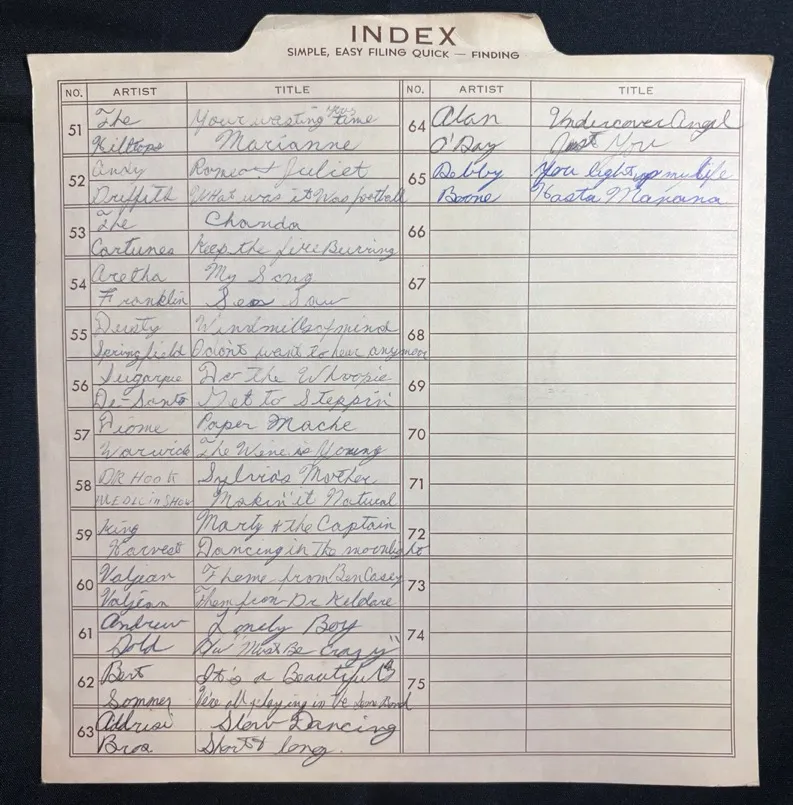 INDEX
SIMPLE, EASY FILING QUICK — FINDING
NO. ARTIST TITLE
51 The Your wasting your time
Hilltops Marianne
52 Andy Romeo & Juliet
Griffith What was it Was football
53 The Chanda
Cortunes Keep the fire Burning
54 Aretha My Song
Franklin See Saw
55 Dusty Windmills of mind
Springfield I don't want to hear anymore
56 Sugarpie Do the Whoopie
De-Santo Get to Steppin'
57 Dionne Paper Mache
Warwick The Wine is Young
58 DR Hook Sylvia's Mother
MEDECIN SHOW Makin' it Natural
59 King Marty & the Captain
Harvest Dancing in the moonlight
60 Valjean Theme from Ben Casey
Valjean Them from Dr. Keldare
61 Andrew Lonely Boy
Gold "Must Be Crazy"
62 Bert It's a Beautiful
Sommer We're all playing in the same Band
63 Addrisi Slow Dancing
Bros
NO. ARTIST TITLE
64 Alan Undercover Angel
O'Day Just You
65 Debby You light up my life
Boone Hasta Manana
66
67
68
69
70
71
72
73
74
75